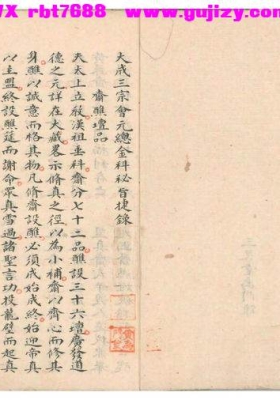 VX rbt7688 www.gujizy.com
大成三宗會元總金科祕旨捷錄
齋醮壇品
天太上立敎漢祖垂科分七十二品醮設三十六壇齋發道
德之元詳在大藏畧示修真之徑以為小補齋以齋心而修其
身醮以誠意而格其物凡修齋設醮必須成始成終始迎帝真
以主盟終設醮筵而謝命眾真雪過諸聖言功投龍璧而起真